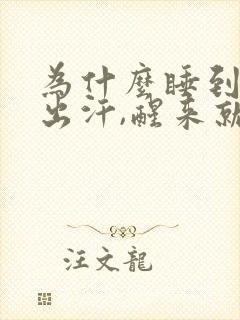 為什麼睡到
出汗,醒來就
汪文龍